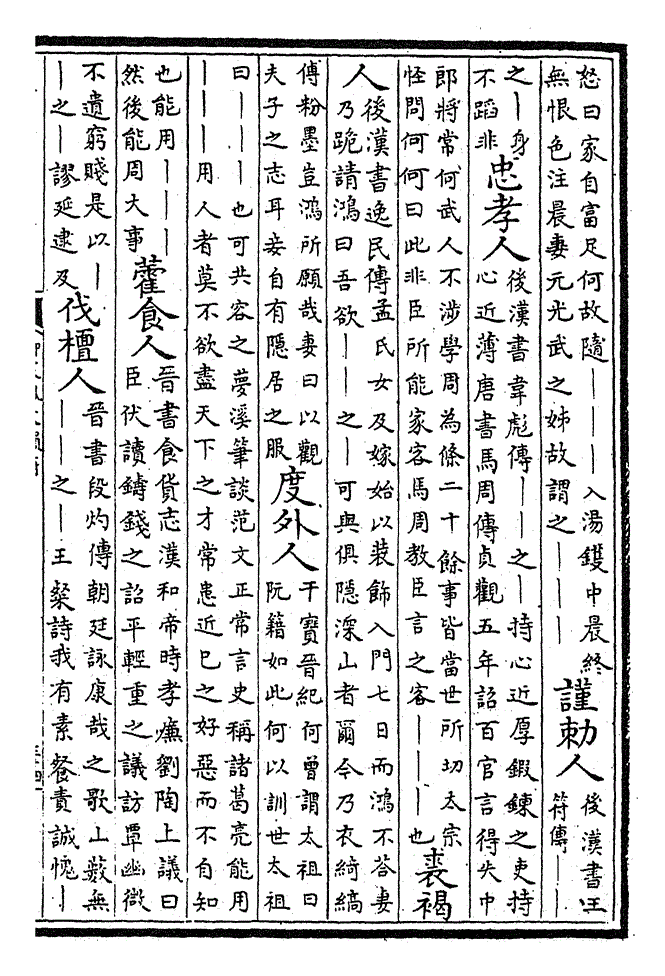 怒曰家自富足何故隨｜｜｜入湯鑊中晨終
無恨色注晨妻元光武之姊故謂之｜｜｜
謹勅人
後漢書王
符傳｜｜
之｜身
不蹈非
忠孝人
後漢書韋彪傳｜｜之｜持心近厚鍛鍊之吏持
心近薄唐書馬周傳貞觀五年詔百官言得失中
郎將常何武人不涉學周為條二十餘事皆當世所切太宗
怪問何何曰此非臣所能家客馬周教臣言之客｜｜｜也
裘褐
人
後漢書逸民傳孟氏女及嫁始以裝飾入門七日而鴻不答妻
乃跪請鴻曰吾欲｜｜之｜可與俱隱深山者爾今乃衣綺縞
傅粉墨豈鴻所願哉妻曰以觀
夫子之志耳妾自有隱居之服
度外人
干寶晉紀何曾謂太祖曰
阮籍如此何以訓世太祖
曰｜｜｜也可共容之夢溪筆談范文正常言史稱諸葛亮能用
｜｜｜用人者莫不欲盡天下之才常患近已之好惡而不自知
也能用｜｜｜
然後能周大事
藿食人
晉書食貨志漢和帝時孝廉劉陶上議曰
臣伏讀鑄錢之詔平輕重之議訪覃幽微
不遺窮賤是以｜
｜之｜謬延逮及
伐檀人
晉書段灼傳朝廷詠康哉之歌山藪無
｜｜｜之｜王粲詩我有素餐責誠愧｜